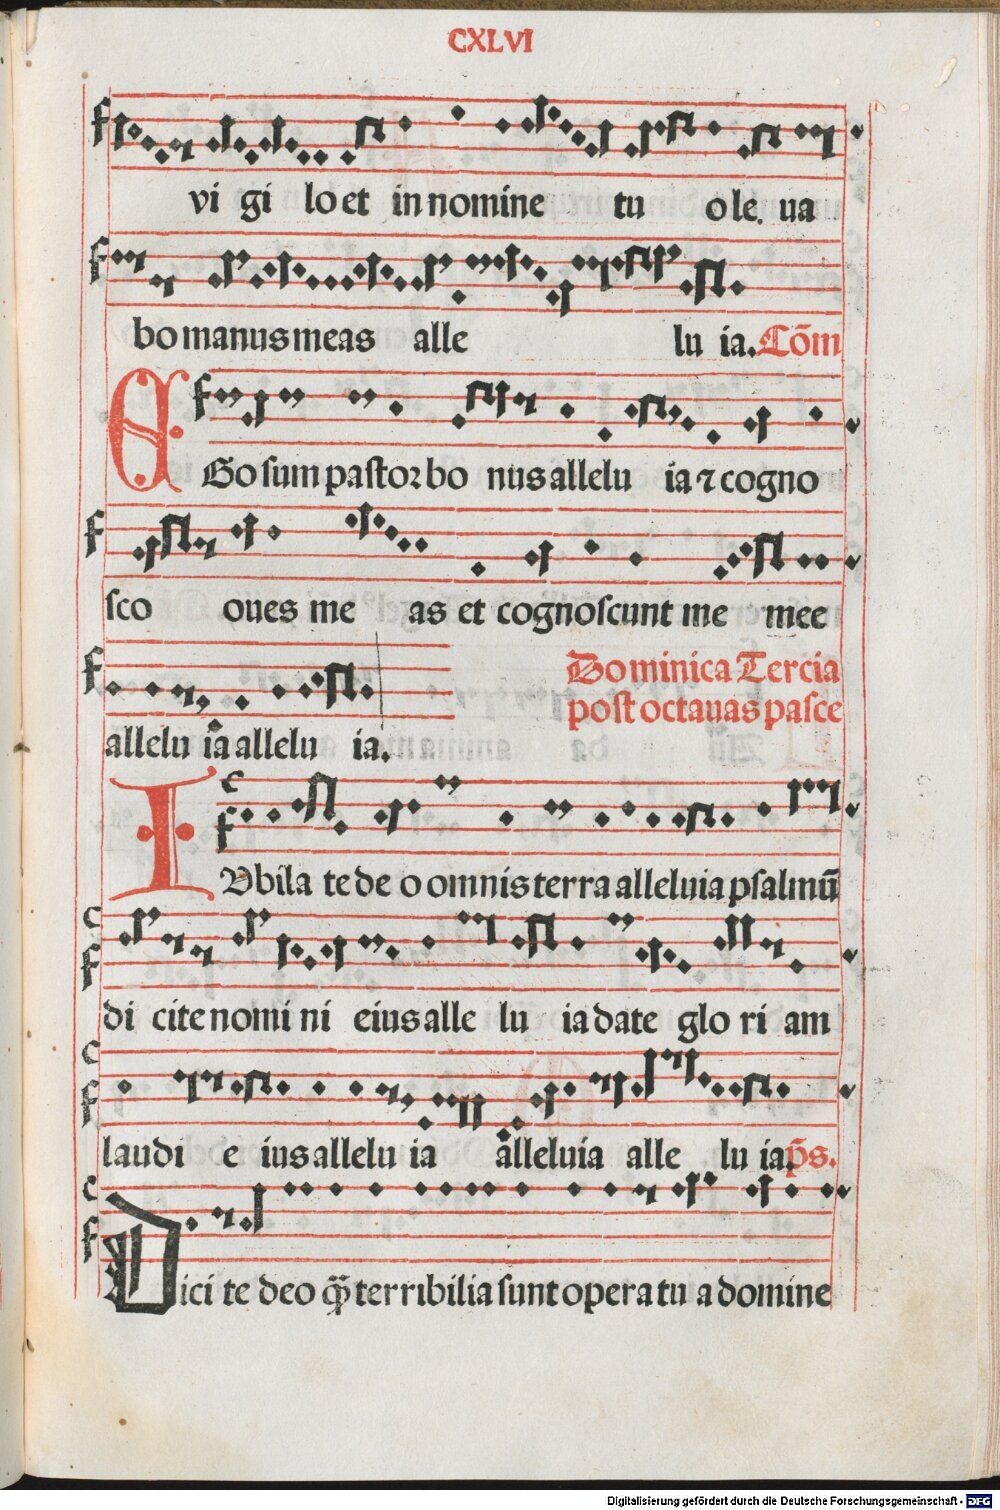 CXLVI
vi gi lo et in nomine tu o le ua
bo manus meas alle lu ia. Cõm
EGo sum pastor bo nus allelu ia ⁊ cogno
sco oues me as et cognoscunt me mee
allelu ia allelu ia.
Dominica Tercia
post octauas pasce
IVbila te de o omnis terra alleluia psalmū
di cite nomi ni eius alle lu ia date glo ri am
laudi e ius allelu ia alleluia alle lu ia. p̄s.
Dici te deo q̄ terribilia sunt opera tu a domine
Digitalisierung gefördert durch die Deutsche Forschungsgemeinschaft - DFG